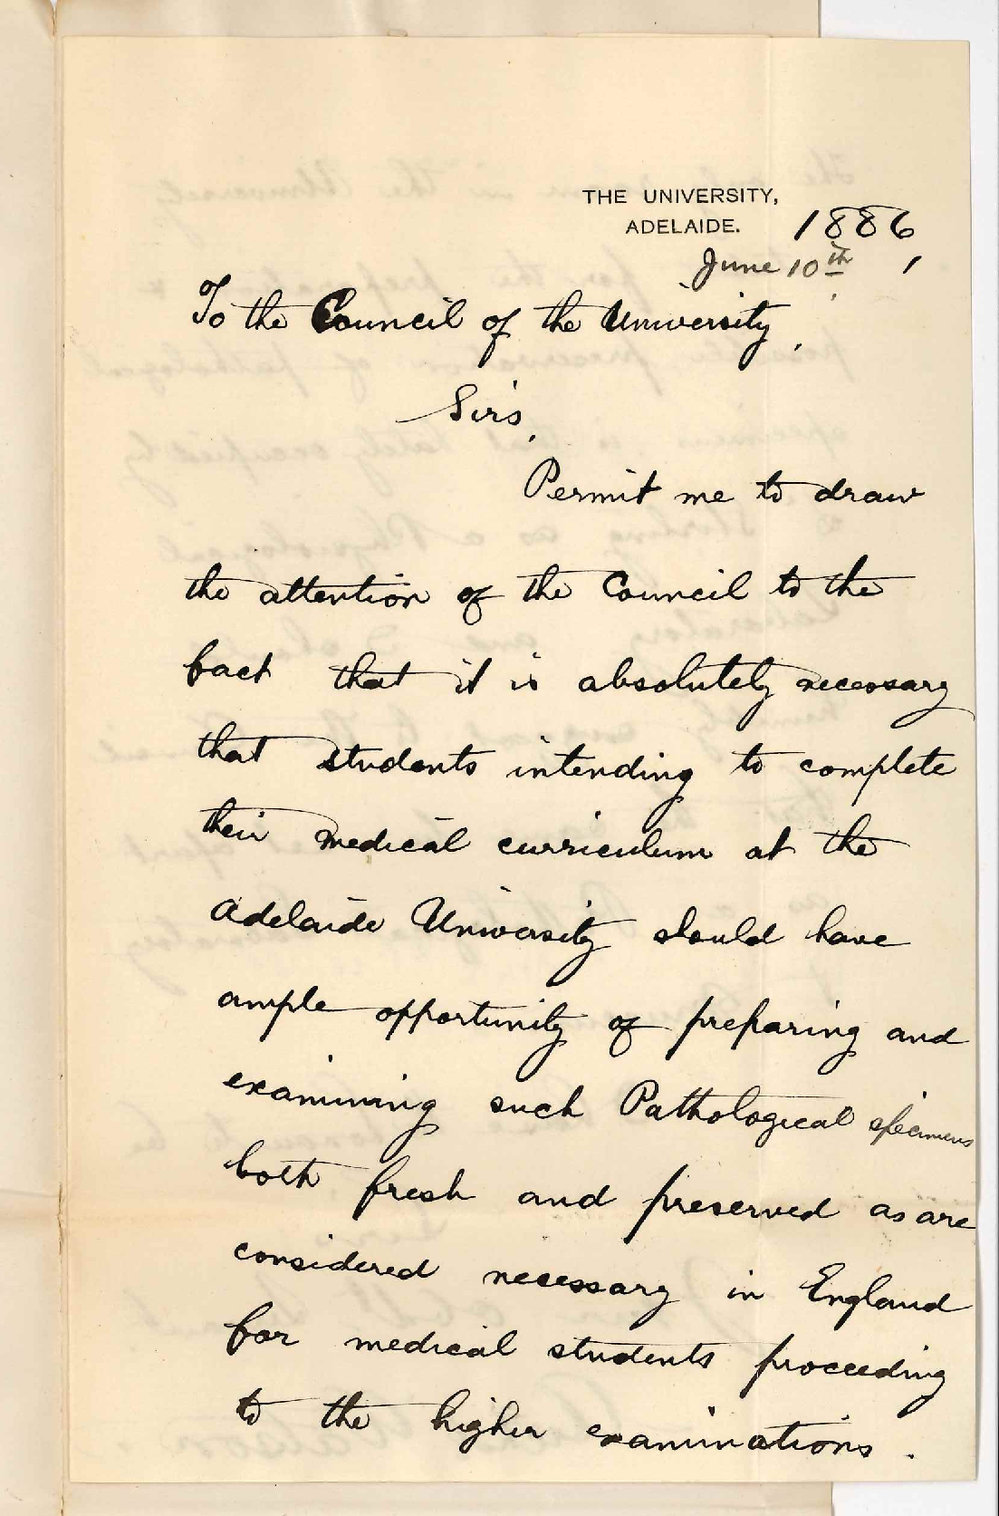 THE UNIVERSITY,
ADELAIDE. 1886,
June 10th
To the Council of the University,
Sirs,
Permit me to draw
the attention of the Council to the
fact that it is absolutely necessary
that students intending to complete
their medical curriculum at the
Adelaide University should have
ample opportunity of preparing and
examining such Pathological specimens
both fresh and preserved as are
considered necessary in England
for medical students proceeding
to the higher examinations.